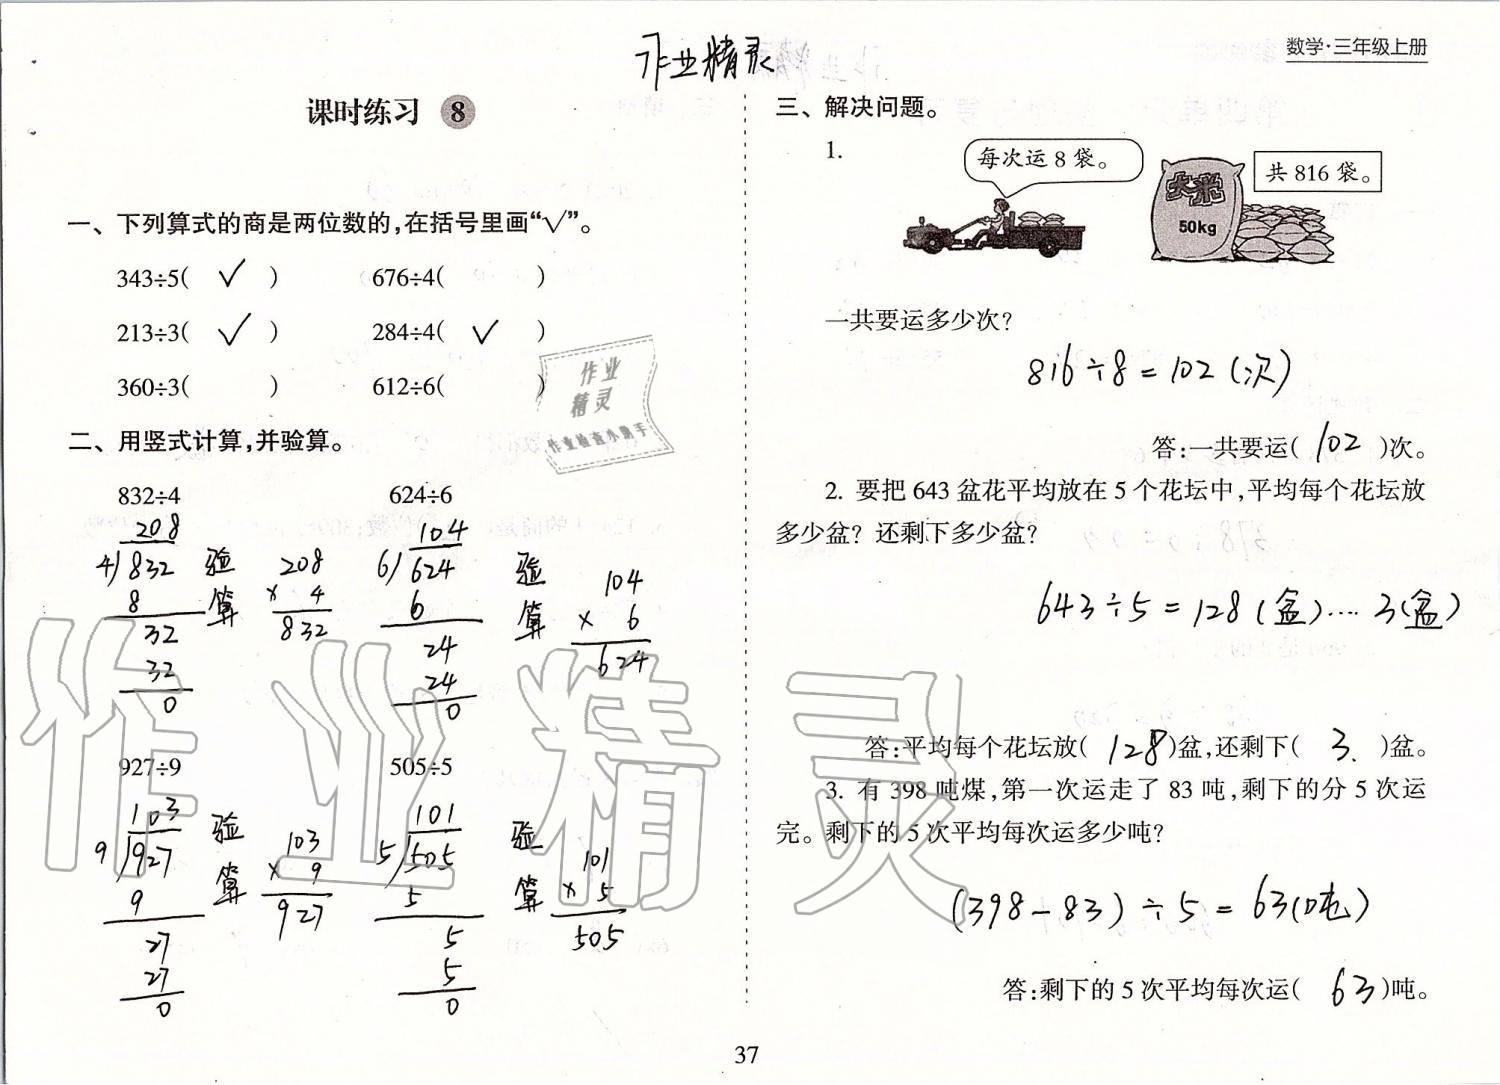 作业精灵
数学·三年级上册
课时练习 8
一、下列算式的商是两位数的,在括号里画“√”。
343÷5( ✓ ) 676÷4( )
213÷3( ✓ ) 284÷4( ✓ )
360÷3( ) 612÷6( )
作业
精灵
作业检查小助手
二、用竖式计算,并验算。
832÷4 624÷6
208
4)832
8
32
32
0
验算
208
× 4
832
104
6)624
6
24
24
0
验算
104
× 6
624
927÷9 505÷5
103
9)927
9
27
27
0
验算
103
× 9
927
101
5)505
5
5
5
0
验算
101
× 5
505
三、解决问题。
1.
每次运 8 袋。
大米
50kg
共 816 袋。
一共要运多少次?
816÷8=102(次)
答:一共要运( 102 )次。
2. 要把 643 盆花平均放在 5 个花坛中,平均每个花坛放
多少盆? 还剩下多少盆?
643÷5=128(盆)····3(盆)
答:平均每个花坛放( 128 )盆,还剩下( 3. )盆。
3. 有 398 吨煤,第一次运走了 83 吨,剩下的分 5 次运
完。剩下的 5 次平均每次运多少吨?
(398-83)÷5=63(吨)
答:剩下的 5 次平均每次运( 63 )吨。
作业精灵
37